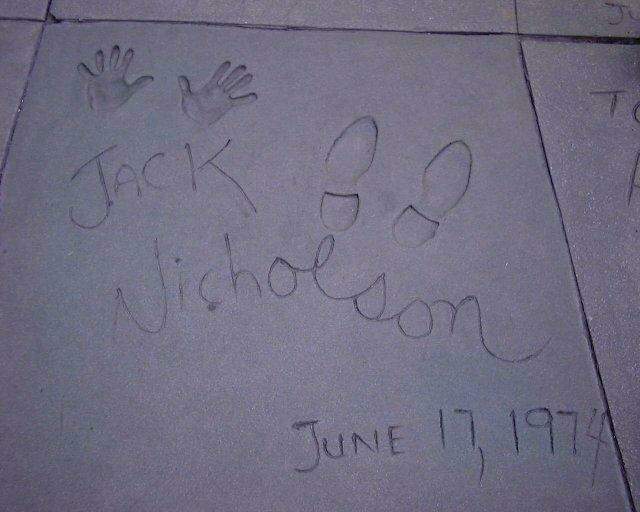 JACK
Nicholson
JUNE 17, 1974